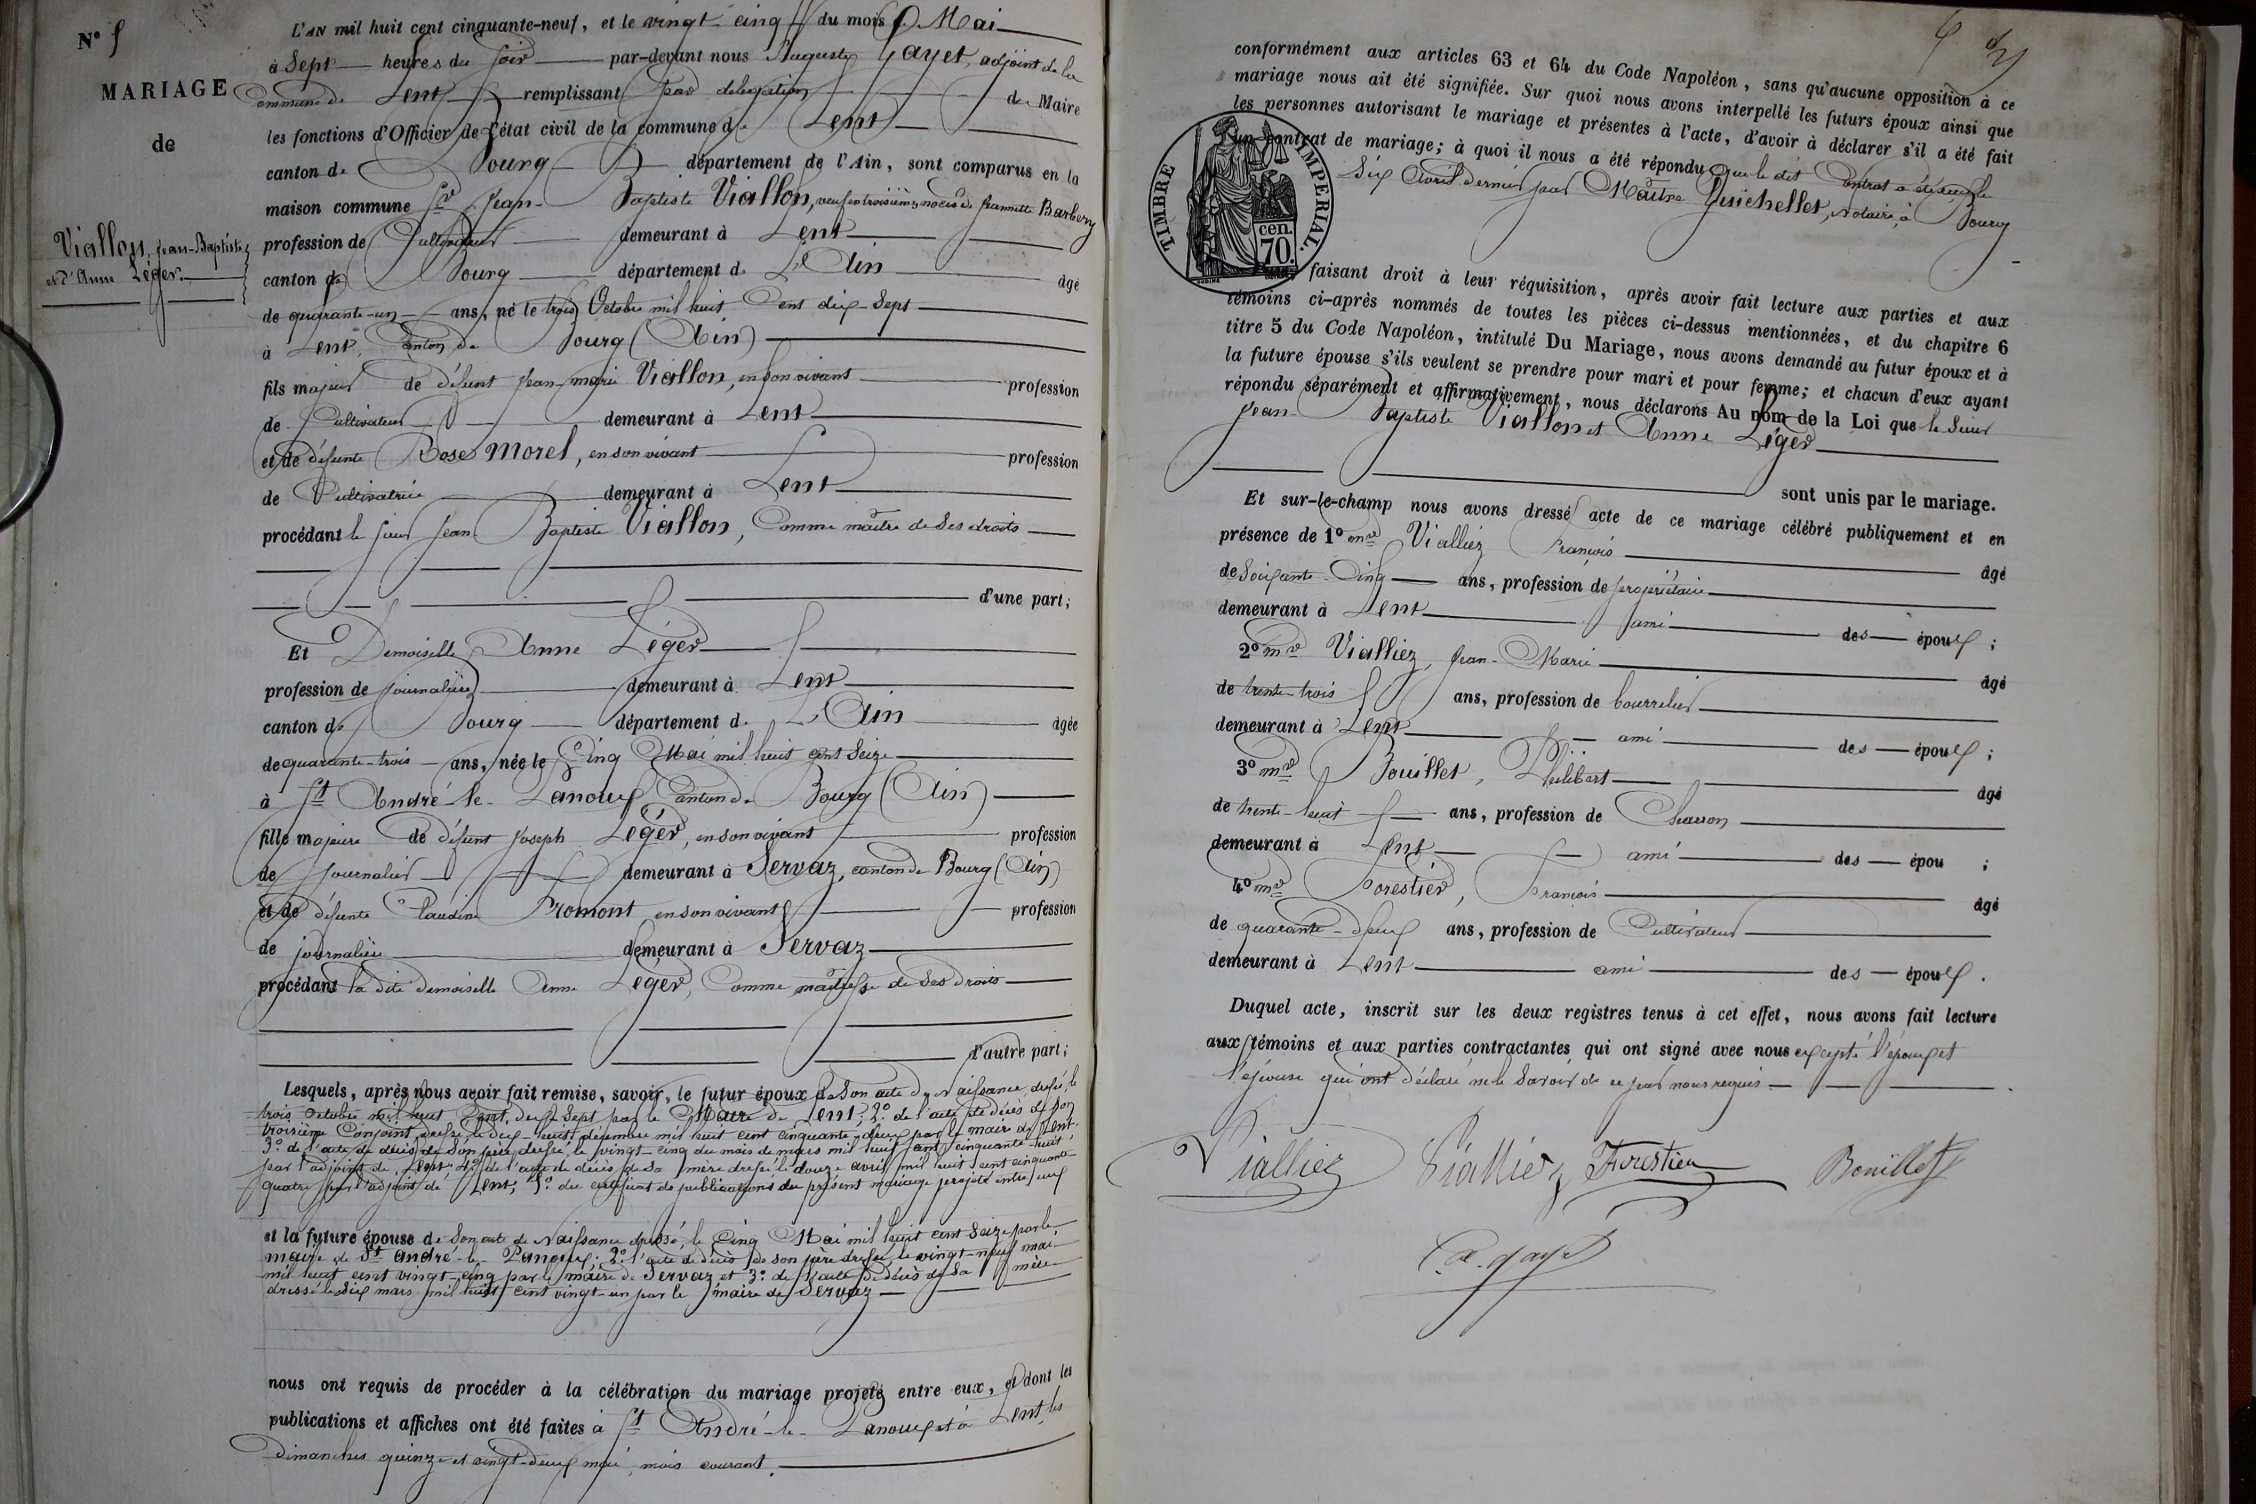 N° 5
MARIAGE
de
Viallon, Jean-Baptiste
et d'Anne Léger.
L'AN mil huit cent cinquante-neuf, et le vingt-cinq du mois de Mai
à Sept heures du soir par-devant nous Auguste Gayet, adjoint de la
commune de Lent remplissant par délégation de Maire
les fonctions d'Officier de l'état civil de la commune de Lent
canton de Bourg département de l'Ain, sont comparus en la
maison commune Sr Jean-Baptiste Viallon, veuf en troisièmes noces de Jeannette Barberry
profession de Cultivateur demeurant à Lent
canton de Bourg département de L'Ain âgé
de quarante-un ans, né le trois Octobre mil huit Cent dix-Sept
à Lent, canton de Bourg (Ain)
fils majeur de défunt Jean-marie Viallon, en son vivant profession
de Cultivateur demeurant à Lent
et de défunte Rose Morel, en son vivant profession
de Cultivatrice demeurant à Lent
procédant le sieur Jean-Baptiste Viallon, Comme maître de Ses droits
d'une part;
Et Demoiselle Anne Léger
profession de journalière demeurant à Lent
canton de Bourg département de L'Ain âgée
de quarante-trois ans, née le Cinq Mai mil huit cent Seize
à St André-le-Panoux canton de Bourg (Ain)
fille majeure de défunt Joseph Léger, en son vivant profession
de Journalier demeurant à Servaz, canton de Bourg (Ain)
et de défunte Claudine Fromont, en son vivant profession
de journalière demeurant à Servaz
procédant la dite demoiselle Anne Léger, Comme maîtresse de Ses Droits
d'autre part;
Lesquels, après nous avoir fait remise, savoir, le futur époux de Son acte de Naissance, dressé, le
trois octobre mil huit Cent dix Sept par le Maire de Lent; 2° de l'acte de décès de son
troisième Conjoint, dressé, le dix-huit décembre mil huit cent cinquante-deux par le maire de Lent.
3° de l'acte de décès de Son père, dressé, le vingt-cinq du mois de mars mil huit cent cinquante-huit,
par l'adjoint de Lent 4° de l'acte de décès de Sa mère dressé le douze avril mil huit cent cinquante-
quatre par l'adjoint de Lent; 5° du certificat de publications du présent mariage projeté entre eux
et la future épouse de Son acte de Naissance dressé, le Cinq Mai mil huit cent Seize par le
maire de St André-le-Panoux; 2° l'acte de décès de son père dressé le vingt-neuf mai
mil huit cent vingt-cinq par le maire de Servaz et 3° de l'acte de décès de Sa mère
dressé le dix mars mil huit cent vingt-un par le maire de Servaz
nous ont requis de procéder à la célébration du mariage projeté entre eux, et dont les
publications et affiches ont été faites à St André-le-Panoux et à Lent, les
dimanches quinze et vingt-deux mai, mois courant.
conformément aux articles 63 et 64 du Code Napoléon, sans qu'aucune opposition à ce
mariage nous ait été signifiée. Sur quoi nous avons interpellé les futurs époux ainsi que
les personnes autorisant le mariage et présentes à l'acte, d'avoir à déclarer s'il a été fait
un contrat de mariage; à quoi il nous a été répondu que le dit Contrat a été reçu le
Six Avril dernier par Maître Guichellet, notaire, à Bourg
TIMBRE IMPÉRIAL.
70. cen.
faisant droit à leur réquisition, après avoir fait lecture aux parties et aux
témoins ci-après nommés de toutes les pièces ci-dessus mentionnées, et du chapitre 6
titre 5 du Code Napoléon, intitulé Du Mariage, nous avons demandé au futur époux et à
la future épouse s'ils veulent se prendre pour mari et pour femme; et chacun d'eux ayant
répondu séparément et affirmativement, nous déclarons Au nom de la Loi que le Sieur
Jean-Baptiste Viallon et Anne Léger
sont unis par le mariage.
Et sur-le-champ nous avons dressé acte de ce mariage célébré publiquement et en
présence de 1° mr Vialliez François âgé
de Soixante-Cinq ans, profession de propriétaire
demeurant à Lent ami des époux;
2° mr Vialliez, Jean-Marie âgé
de trente-trois ans, profession de bourrelier
demeurant à Lent ami des époux;
3° mr Bouillet, Philibert âgé
de trente-huit ans, profession de Charron
demeurant à Lent ami des épou;
4° mr Forestier, François âgé
de quarante-deux ans, profession de Cultivateur
demeurant à Lent ami des époux.
Duquel acte, inscrit sur les deux registres tenus à cet effet, nous avons fait lecture
aux témoins et aux parties contractantes qui ont signé avec nous excepté l'époux et
l'épouse qui ont déclaré ne le Savoir de ce par nous requis
Vialliez Vialliez Forestier Bouillet
a. gayet